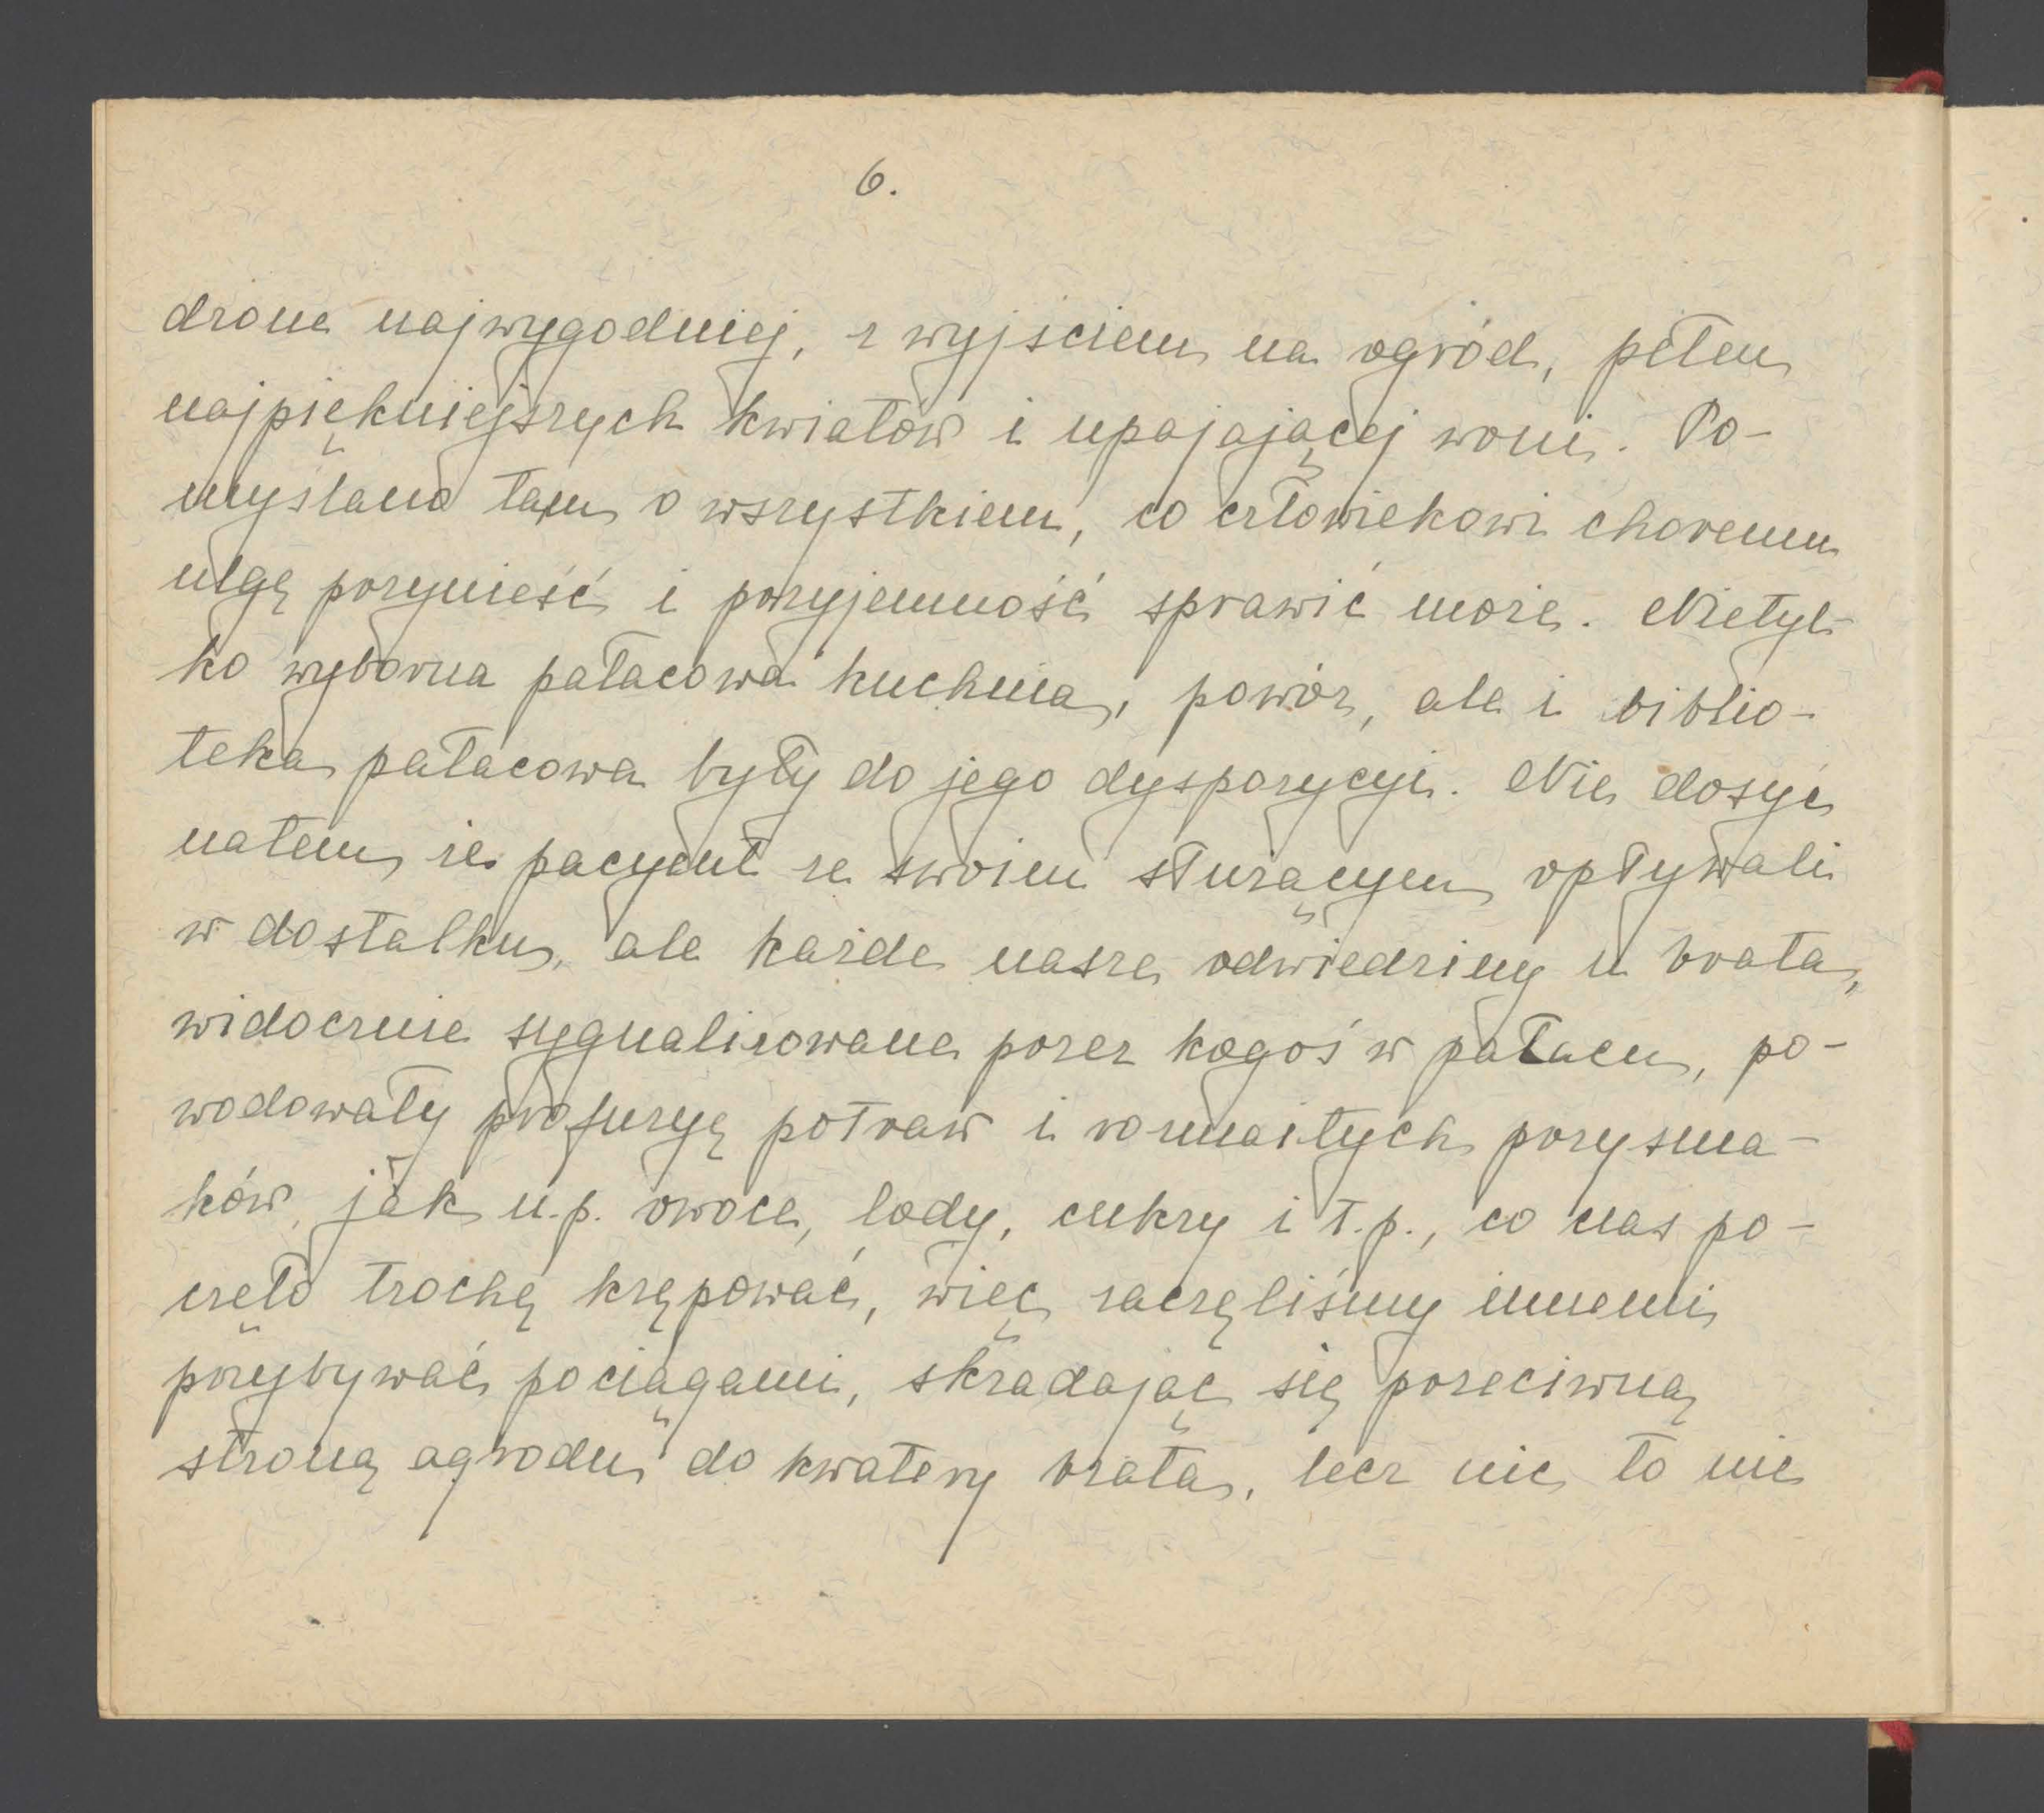 6.
dzone najwygodniej, z wyjściem na ogród, pełen
najpiękniejszych kwiatów i upajającej woni. Po-
myślano tam o wszystkiem, co człowiekowi choremu
ulgę przynieść i przyjemność sprawić może. Nietyl-
ko wyborna pałacowa kuchnia, powóz, ale i biblio-
teka pałacowa były do jego dyspozycyi. Nie dosyć
natem, że pacyent ze swoim służącym opływali
w dostatku, ale każde nasze odwiedziny u brata,
widocznie sygnalizowane przez kogoś w pałacu, po-
wodowały profuzyę potraw i rozmaitych przysma-
ków, jak n.p. owoce, lody, cukry i t.p., co nas po-
częło trochę krępować, więc zaczęliśmy innemi
przybywać pociągami, skradając się przeciwną
stroną ogrodu do kwatery brata, lecz nic to nie